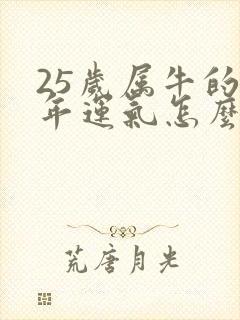 25歲属牛的
年運氣怎麼
荒唐月光